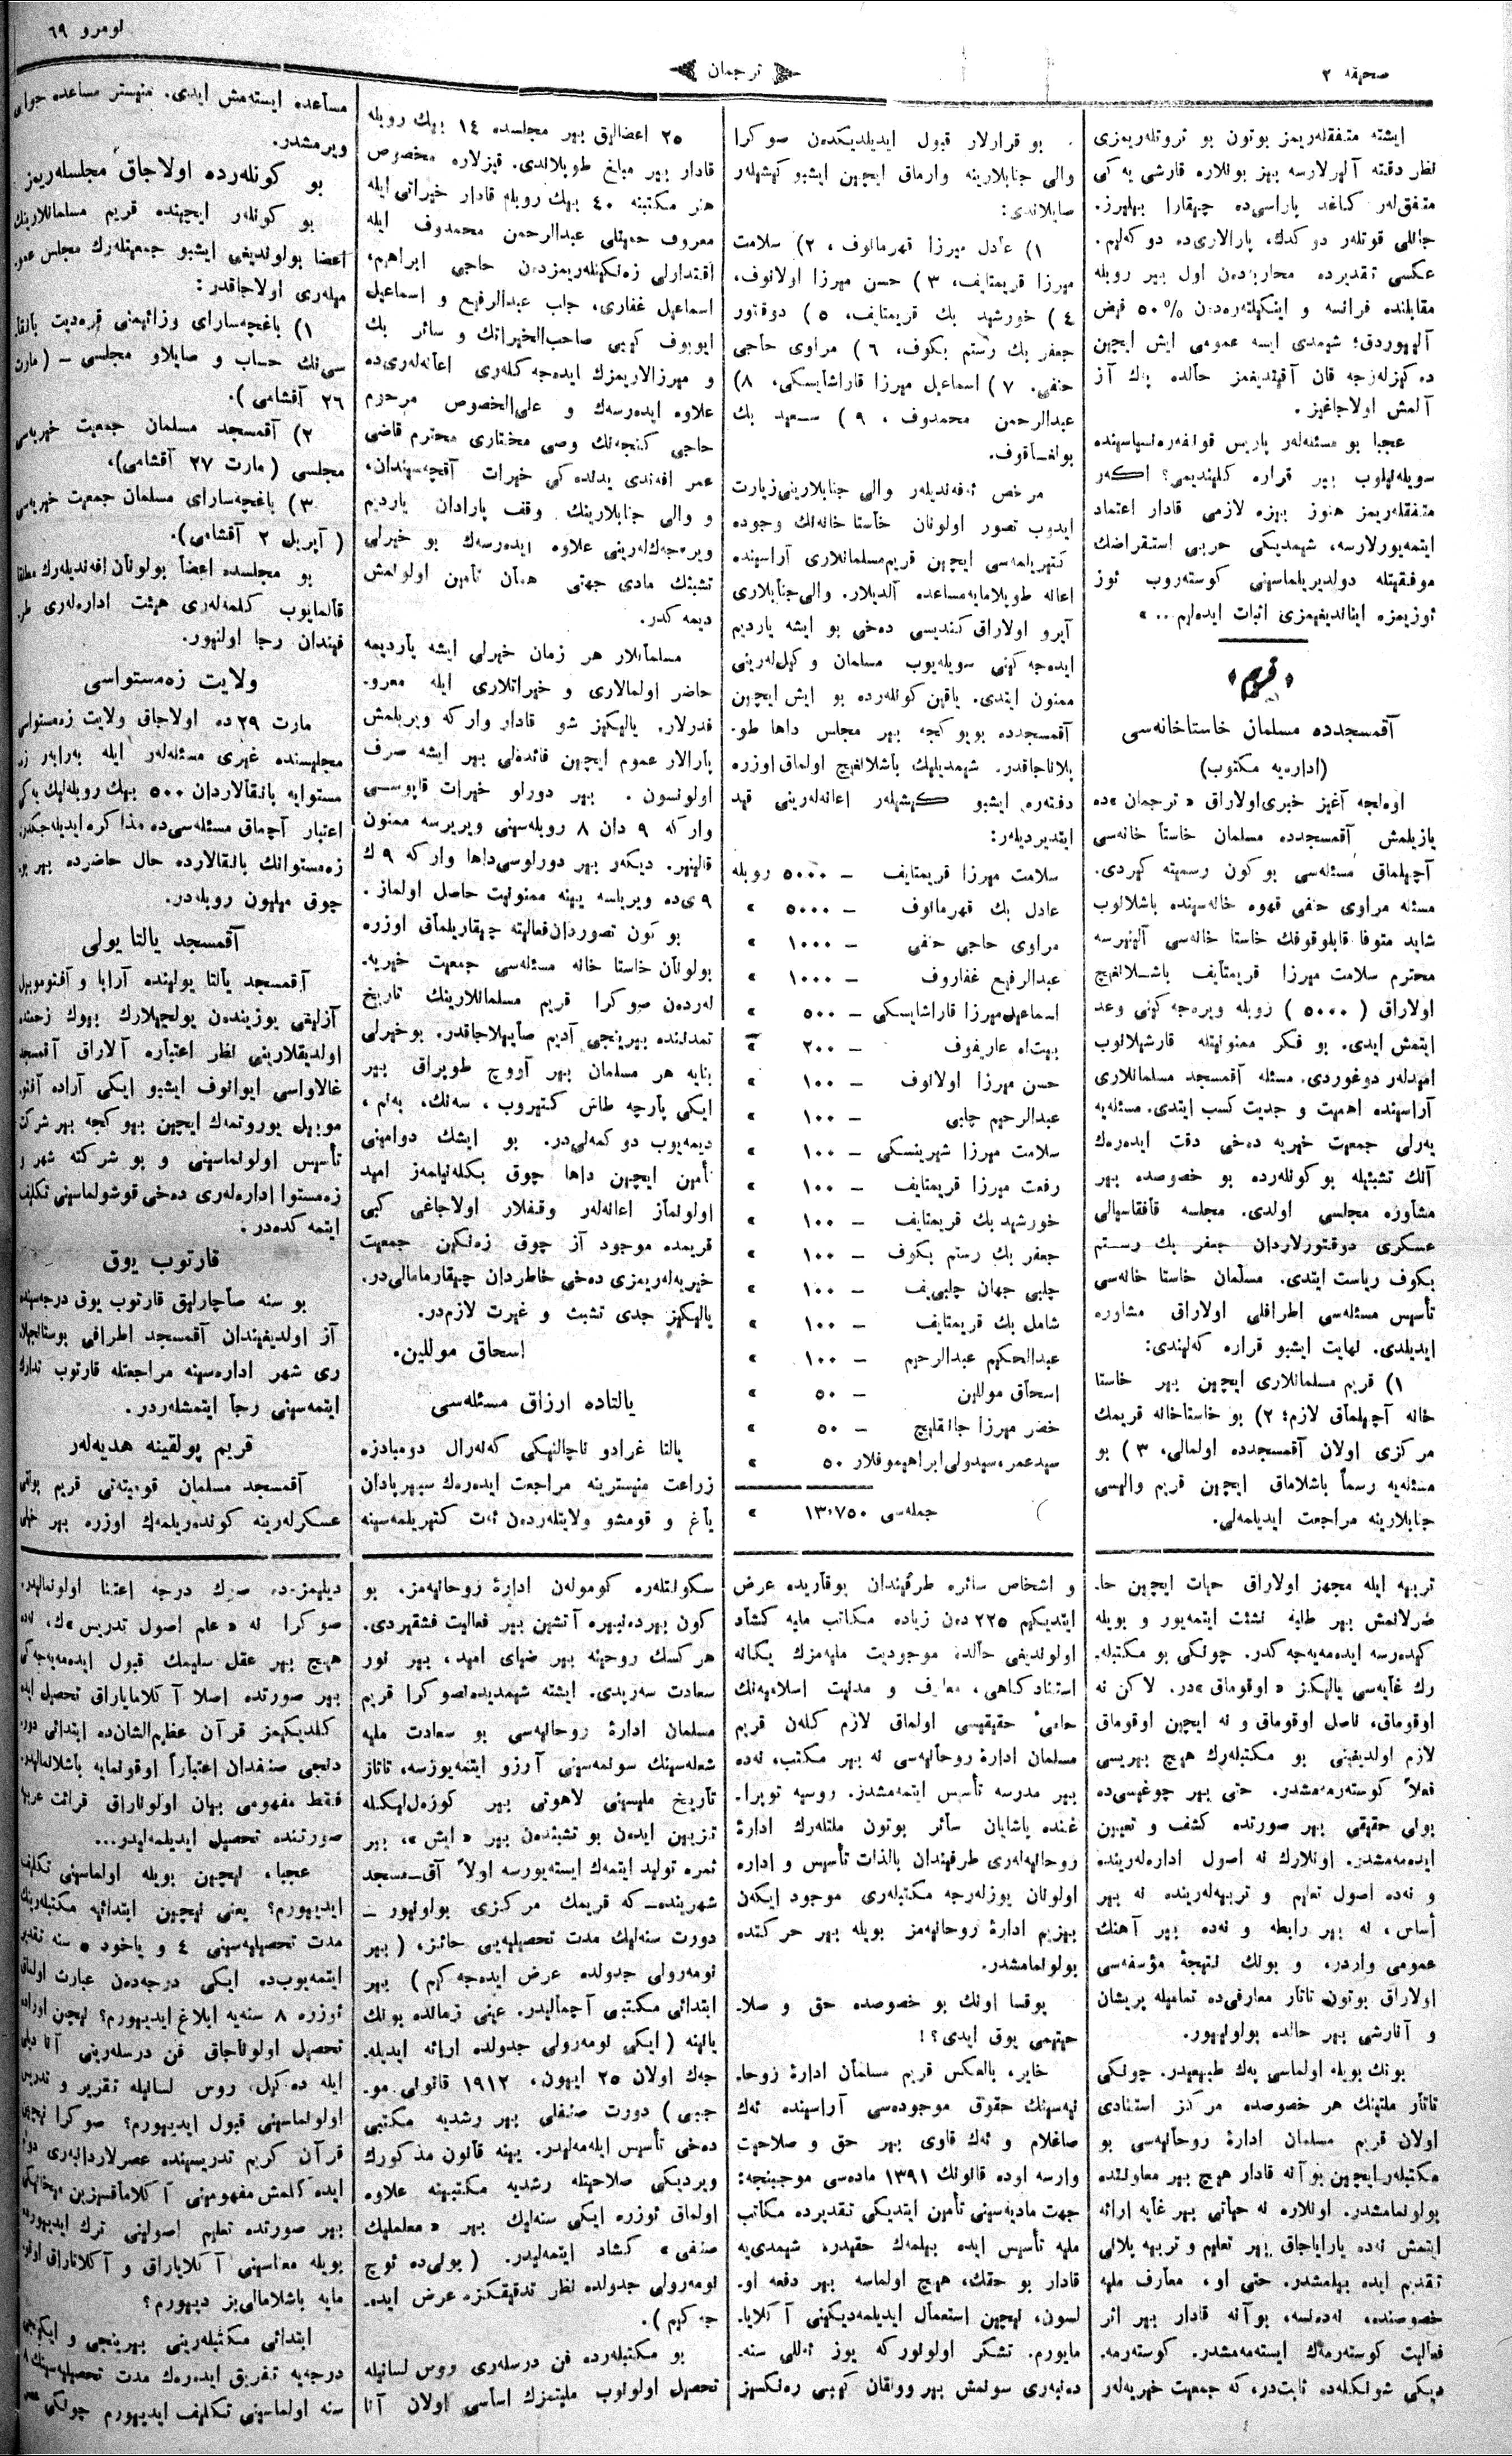 صحیفه ٢
ترجمان
نومرو ٦٩
ایشته متفقلەریمز بوتون بو ثروتلەریمزی
نظر دقته آلیرلارسه بیز بونلاره قارشی یه کی
متفق‌لەر کاغد پاراسی‌ده چیقارا بیلیرز.
جانلی قوتلەر دوکدك، پارالاری‌ده دوکەلیم.
عکسی تقدیرده محاربه‌دن اول بیر روبله
مقابلنده فرانسه و اینکیلتەره‌دن %٥٠ فیض
آلییوردق؛ شیمدی ایسه عمومی ایش ایچین
دکیزلەرجه قان آقیتدیغمز حالده پك آز
آلمش اولاجاغیز.
عجبا بو مسئله‌لەر پاریس قونفەره‌نسیاسینده
سویله‌نیلوب بیر قراره کلیندیمی؟ اکەر
متفقلەریمز هنوز بیزه لازمی قادار اعتماد
ایتمەیورلارسه، شیمدیکی حربی استقراضك
موفقیتله دولدیریلماسینی کوستەروب ئوز
ئوزیمزه ایناندیغیمزی اثبات ایده‌لیم... »
« قریم »
آقمسجدده مسلمان خاستاخانه‌سی
(اداره‌یه مکتوب)
اوەلجه آغیز خبری اولاراق « ترجمان »ده
یازیلمش آقمسجدده مسلمان خاستا خانه‌سی
آچیلماق مسئله‌سی بو کون رسمیته کیردی.
مسئله مراوی حنفی قهوه خانه‌سینده باشلانوب
شاید متوفا قابلوقوفك خاستا خانه‌سی آلینیرسه
محترم سلامت میرزا قریمتایف باشلانغیچ
اولاراق ( ٥٠٠٠ ) روبله ویره‌جه کینی وعد
ایتمش ایدی. بو فکر ممنونیتله قارشیلانوب
امیدلەر دوغوردی. مسئله آقمسجد مسلمانلاری
آراسینده اهمیت و جدیت کسب ایتدی. مسئله‌یه
یەرلی جمعیت خیریه ده‌خی دقت ایده‌رەك
آنك تشبثیله بو کونلەرده بو خصوصده بیر
مشاوره مجلسی اولدی. مجلسه قافقاسیالی
عسکری دوقتورلاردان جعفر بك رستم
بکوف ریاست ایتدی. مسلمان خاستا خانه‌سی
تأسیس مسئله‌سی اطرافلی اولاراق مشاوره
ایدیلدی. نهایت ایشبو قراره کەلیندی:
١) قریم مسلمانلاری ایچین بیر خاستا
خانه آچیلماق لازم؛ ٢) بو خاستاخانه قریمك
مرکزی اولان آقمسجدده اولمالی، ٣) بو
مسئله‌یه رسماً باشلاماق ایچین قریم والیسی
جنابلارینه مراجعت ایدیلمه‌لی.
بو قرارلار قبول ایدیلدیکدن صوکرا
والی جنابلارینه وارماق ایچین ایشبو کیشیلەر
صایلاندی:
١) عادل میرزا قهرمانوف، ٢) سلامت
میرزا قریمتایف، ٣) حسن میرزا اولانوف،
٤) خورشید بك قریمتایف، ٥) دوقتور
جعفر بك رستم بکوف، ٦) مراوی حاجی
حنفی. ٧) اسماعیل میرزا قاراشایسکی، ٨)
عبدالرحمن محمدوف، ٩) سعید بك
بولغاقوف.
مرخص ئەفەندیلەر والی جنابلارینی زیارت
ایدوب تصور اولونان خاستا خانه‌نك وجوده
کتیریلمه‌سی ایچین قریم مسلمانلاری آراسینده
اعانه طوپلامایه مساعده آلدیلار. والی جنابلاری
آیرو اولاراق کندیسی ده‌خی بو ایشه یاردیم
ایده‌جه کینی سویله‌یوب مسلمان وکیل‌لەرینی
ممنون ایتدی. یاقین کونلەرده بو ایش ایچین
آقمسجدده بویوکجه بیر مجلس داها طو-
پلاناجاقدر. شیمدیلیك باشلانغیچ اولماق اوزره
دفتەره ایشبو کیشیلەر اعانه‌لەرینی قید
ایتدیردیلەر:
سلامت میرزا قریمتایف — ٥٠٠٠ روبله
عادل بك قهرمانوف — ٥٠٠٠ »
مراوی حاجی حنفی — ١٠٠٠ »
عبدالرفیع غفاروف — ١٠٠٠ »
اسماعیل میرزا قاراشایسکی — ٥٠٠ »
بیت‌اه عاریفوف — ٢٠٠ »
حسن میرزا اولانوف — ١٠٠ »
عبدالرحیم چلبی — ١٠٠ »
سلامت میرزا شیرینسکی — ١٠٠ »
رفعت میرزا قریمتایف — ١٠٠ »
خورشید بك قریمتایف — ١٠٠ »
جعفر بك رستم بکوف — ١٠٠ »
چلبی جهان چلبی‌یف — ١٠٠ »
شامل بك قریمتایف — ١٠٠ »
عبدالحکیم عبدالرحیم — ١٠٠ »
اسحاق موللین — ٥٠ »
خضر میرزا جانقلیچ — ٥٠ »
سیدعمر، سیدولی ابراهیموفلار ٥٠ »
جمله‌سی ١٣٠٧٥٠ »
٢٥ اعضالیق بیر مجلسده ١٤ بیك روبله
قادار بیر مبلغ طوپلاندی. قیزلاره مخصوص
هنر مکتبنه ٤٠ بیك روبله قادار خیراتی ایله
معروف حمیتلی عبدالرحمن محمدوف ایله
اقتدارلی زەنکینلەریمزدن حاجی ابراهیم،
اسماعیل غفاری، جاب عبدالرفیع و اسماعیل
ایوبوف کیبی صاحب‌الخیراتك و سائر بك
و میرزالاریمزك ایده‌جەکلەری اعانه‌لەری‌ده
علاوه ایدەرسەك و علی‌الخصوص مرحوم
حاجی کنجه‌نك وصی مختاری محترم قاضی
عمر افەندی یدنده‌کی خیرات آقچه‌سیندان،
و والی جنابلارینك وقف پارادان یاردیم
ویره‌جەك‌لەرینی علاوه ایدەرسەك بو خیرلی
تشبثك مادی جهتی همان تأمین اولونمش
دیمه کدر.
مسلمانلار هر زمان خیرلی ایشه یاردیمه
حاضر اولمالاری و خیراتلاری ایله معرو-
فدرلار. یالیکیز شو قادار وارکه ویریلمش
پارالار عموم ایچین فائده‌لی بیر ایشه صرف
اولونسون. بیر دورلو خیرات قاپوسی
وارکه ٩ دان ٨ روبله‌سینی ویریرسه ممنون
قالینیر. دیکەر بیر دورلوسی داها وارکه ٩ك
٩ی‌ده ویریلسه یینه ممنونیت حاصل اولماز.
بو کون تصوردان فعالیته چیقاریلماق اوزره
بولونان خاستا خانه مسئله‌سی جمعیت خیریه-
لەردەن صوکرا قریم مسلمانلارینك تاریخ
تمدننده بیرینجی آدیم صاییلاجاقدر. بو خیرلی
بنایه هر مسلمان بیر آووچ طوپراق بیر
ایکی پارچه طاش کتیروب، سەنك، بەنم،
دیمەیوب دوکمه‌لی‌در. بو ایشك دوامینی
تأمین ایچین داها چوق بکله‌نیلمەز امید
اولونماز اعانه‌لەر وقفلار اولاجاغی کبی
قریمده موجود آز چوق زەنکین جمعیت
خیریه‌لەریمزی ده‌خی خاطردان چیقارمامالی‌در.
یالیکیز جدی تشبث و غیرت لازم‌در.
اسحاق موللین.
یالتاده ارزاق مسئله‌سی
یالتا غرادو ناچالنیکی کەنەرال دومبادزه
زراعت منیسترینه مراجعت ایدەرەك سیبریادان
یاغ و قومشو ولایتلەردەن ئەت کتیریلمه‌سینه
مساعده ایسته‌مش ایدی. منیستر مساعده جوابی
ویرمشدر.
بو کونلەرده اولاجاق مجلسلەریمز
بو کونلەر ایچینده قریم مسلمانلارینك
اعضا بولوندیغی ایشبو جمعیتلەرك مجلس عمو-
میلەری اولاجاقدر:
١) باغچه‌سارای وزائیمنی قرەدیت بانقا-
سی‌نك حساب و صایلاو مجلسی — (مارت
٢٦ آقشامی).
٢) آقمسجد مسلمان جمعیت خیریه‌سی
مجلسی (مارت ٢٧ آقشامی)،
٣) باغچه‌سارای مسلمان جمعیت خیریه‌سی
( آپریل ٢ آقشامی).
بو مجلسده اعضا بولونان افەندیلەرك مطلقا
قالمایوب کلمەلەری هیئت اداره‌لەری طر-
فیندان رجا اولنیور.
ولایت زەمستواسی
مارت ٢٩ده اولاجاق ولایت زەمستواسی
مجلسینده غیری مسئله‌لەر ایله بەرابەر زە-
مستوایه بانقالاردان ٥٠٠ بیك روبله‌لیك یه‌کی
اعتبار آچماق مسئله‌سی‌ده مذاکره ایدیله‌جکدر.
زەمستوانك بانقالارده حال حاضرده بیر بو-
چوق میلیون روبله‌در.
آقمسجد یالتا یولی
آقمسجد یالتا یولینده آرابا و آفتوموبیل
آزلیقی یوزیندەن یولجیلارك بیوك زحمتده
اولدیقلارینی نظر اعتباره آلاراق آقمسجد
غالاواسی ایوانوف ایشبو ایکی آراده آفتو-
موبیل یوروتمەك ایچین بیوکجه بیر شرکت
تأسیس اولونماسینی و بو شرکته شهر و
زەمستوا اداره‌لەری ده‌خی قوشولماسینی تکلیف
ایتمه کده‌در.
قارتوب یوق
بو سنه صاچارلیق قارتوب یوق درجه‌سینده
آز اولدیغیندان آقمسجد اطرافی بوستانجیلا-
ری شهر اداره‌سینه مراجعتله قارتوب تدارك
ایتمه‌سینی رجا ایتمشلەردر.
قریم پولقینه هدیه‌لەر
آقمسجد مسلمان قومیته‌تی قریم پولقی
عسکرلەرینه کوندەریلمەك اوزره بیر خیلی
تربیه ایله مجهز اولاراق حیات ایچین حا-
ضرلانمش بیر طلبه نشئت ایتمەیور و بویله
کیدەرسه ایدەمەیه‌جه کدر. چونکی بو مکتبله-
رك غایه‌سی یالیکز « اوقوماق »در. لاکن نه
اوقوماق، ناصل اوقوماق و نه ایچین اوقوماق
لازم اولدیغینی بو مکتبلەرك هیچ بیریسی
فعلاً کوستەرمەمشدر. حتی بیر چوغیسی‌ده
یولی حقیقی بیر صورتده کشف و تعیین
ایدەمەمشدر. اونلارك نه اصول اداره‌لەرینده
و نەده اصول تعلیم و تربیه‌لەرینده نه بیر
أساس، نه بیر رابطه و نەده بیر آهنك
عمومی واردر، و بونك نتیجۀ مؤسفه‌سی
اولاراق بوتون تاتار معارفی‌ده تمامیله پریشان
و آنارشی بیر حالده بولونیور.
بونك بویله اولماسی پەك طبیعیدر. چونکی
تاتار ملتینك هر خصوصده مرکز استنادی
اولان قریم مسلمان ادارۀ روحانیه‌سی بو
مکتبلەر ایچین بو آنه قادار هیچ بیر معاونتده
بولونمامشدر. اونلاره نه حیاتی بیر غایه ارائه
ایتمش نەده یارایاجاق بیر تعلیم و تربیه پلانی
تقدیم ایده بیلمشدر. حتی او، معارف ملیه
خصوصنده، نەدەنسه، بو آنه قادار بیر اثر
فعالیت کوستەرمەك ایسته‌مەمشدر. کوستەرمه-
دیکی شونکله‌ده ثابت‌در، که جمعیت خیریه‌لەر
و اشخاص سائره طرفیندان یوقاریده عرض
ایتدیکیم ٢٢٥ دەن زیاده مکاتب ملیه کشاد
اولوندیغی حالده، موجودیت ملیه‌مزك یکانه
استنادکاهی، معارف و مدنیت اسلامیه‌نك
حامیٔ حقیقیسی اولماق لازم کلەن قریم
مسلمان ادارۀ روحانیه‌سی نه بیر مکتب، نەده
بیر مدرسه تأسیس ایتمه‌مشدر. روسیه توپرا-
غنده یاشایان سائر بوتون ملتلەرك ادارۀ
روحانیه‌لەری طرفیندان بالذات تأسیس و اداره
اولونان یوزلەرجه مکتبلەری موجود ایکەن
بیزیم ادارۀ روحانیه‌مز بویله بیر حرکتده
بولونمامشدر.
یوقسا اونك بو خصوصده حق و صلا-
حیتیمی یوق ایدی؟!
خایر، بالعکس قریم مسلمان ادارۀ روحا-
نیه‌سینك حقوق موجوده‌سی آراسینده ئەك
صاغلام و ئەك قاوی بیر حق و صلاحیت
وارسه اوده قانونك ١٣٩١ ماده‌سی موجبینجه:
جهت مادیه‌سینی تأمین ایتدیکی تقدیرده مکاتب
ملیه تأسیس ایده بیلمەك حقیدر. شیمدی‌یه
قادار بو حقك، هیچ اولماسه بیر دفعه او-
لسون، نیچین استعمال ایدیلمەدیکینی آکلایا-
مایورم. تشکر اولونورکه یوز ئەللی سنه-
دەنبەری سونمش بیر وولقان کیبی رەنکسز
سکونتلەره کومولەن ادارۀ روحانیه‌مز، بو
کون بیردەنبیره آتشین بیر فعالیت فشقیردی.
هرکسك روحینه بیر ضیای امید، بیر نور
سعادت سەرپدی. ایشته شیمدیدەن صوکرا قریم
مسلمان ادارۀ روحانیه‌سی بو سعادت ملیه
شعله‌سینك سونمه‌سینی آرزو ایتمه‌یورسه، تاتار
تأریخ ملیسینی لاهوتی بیر کوزەل‌لیکله
تزیین ایدەن بو تشبثدەن بیر « ایش »، بیر
ثمره تولید ایتمەك ایسته‌یورسه اولاً آق‌مسجد
شهرینده — که قریمك مرکزی بولونیور —
دورت سنه‌لیك مدت تحصیلیه‌یی حائز، ( بیر
نومەرولی جدولده عرض ایده‌جه کیم ) بیر
ابتدائی مکتبی آچمالیدر. عینی زمانده بونك
یانینه ( ایکی نومەرولی جدولده ارائه ایدیله-
جەك اولان ٢٥ ایون، ١٩١٢ قانونی مو-
جبی ) دورت صنفلی بیر رشدیه مکتبی
ده‌خی تأسیس ایله‌مەلیدر. یینه قانون مذکورك
ویردیکی صلاحیتله رشدیه مکتبینه علاوه
اولماق ئوزره ایکی سنه‌لیك بیر « معلملیك
صنفی » کشاد ایتمه‌لیدر. ( بونی‌ده ئوچ
نومەرولی جدولده نظر تدقیقکزه عرض ایده-
جه کیم ).
بو مکتبلەرده فن درسلەری روس لسانیله
تحصیل اولونوب ملیتمزك اساسی اولان آنا
دیلیمزه‌ده صوك درجه اعتنا اولونمالیدر.
صوکرا نه « علم اصول تدریس »ك، نەده
هیچ بیر عقل سلیمك قبول ایدەمه‌یه‌جه کی
بیر صورتده اصلا آکلامایاراق تحصیل ایده
کلدیکیمز قرآن عظیم‌الشان‌ده ابتدائی دور-
دنجی صنفدان اعتباراً اوقونمایه باشلانمالیدر.
فقط مفهومی بیان اولوناراق قرائت عربیه
صورتنده تحصیل ایدیلمەلیدر...
عجبا، نیچین بویله اولماسینی تکلیف
ایدیورم؟ یعنی نیچین ابتدائیه مکتبلەرینك
مدت تحصیلیه‌سینی ٤ و یاخود ٥ سنه تقدیر
ایتمەیوب‌ده ایکی درجه‌دەن عبارت اولماق
ئوزره ٨ سنه‌یه ابلاغ ایدییورم؟ نیچین اوراده
تحصیل اولوناجاق فن درسلەرینی آنا دیلی
ایله دەکیل، روس لسانیله تقریر و تدریس
اولونماسینی قبول ایدییورم؟ صوکرا نیچین
قرآن کریم تدریسینده عصرلاردانبەری دوام
ایده‌کلمش مفهومینی آکلاماقسزین میخانیکی
بیر صورتده تعلیم اصولینی ترك ایدییورده
بویله معناسینی آکلایاراق و آکلاتاراق اوقو-
مایه باشلامالی‌یز دییورم؟
ابتدائی مکتبلەرینی بیرینجی و ایکینجی
درجه‌یه تفریق ایدەرەك مدت تحصیلیه‌سینك ٨
سنه اولماسینی تکلیف ایدییورم چونکی